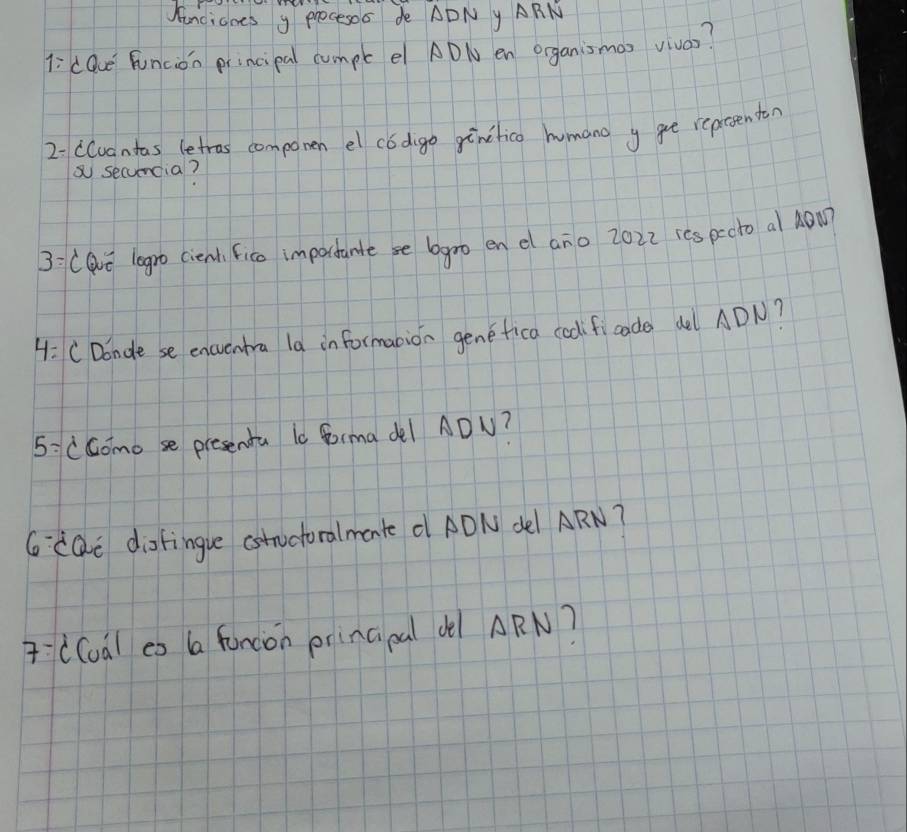 funciones y procesos de ADN y ARN
1=¿Qué función principal cumple el ADN en organismos vivos?
2=¿Cuantas letras componen el código génético humano y que representan
su secuencia?
3=¿Qué logro cientifico importante se logro en el año 2022 respecto al ADN?
4=¿Dónde se encuentra la información genética codificada del ADN?
5=¿Cómo se presenta la forma del ADN?
6=¿Qué distingue estructuralmente el ADN del ARN?
7=¿Cuál es la función principal del ARN?